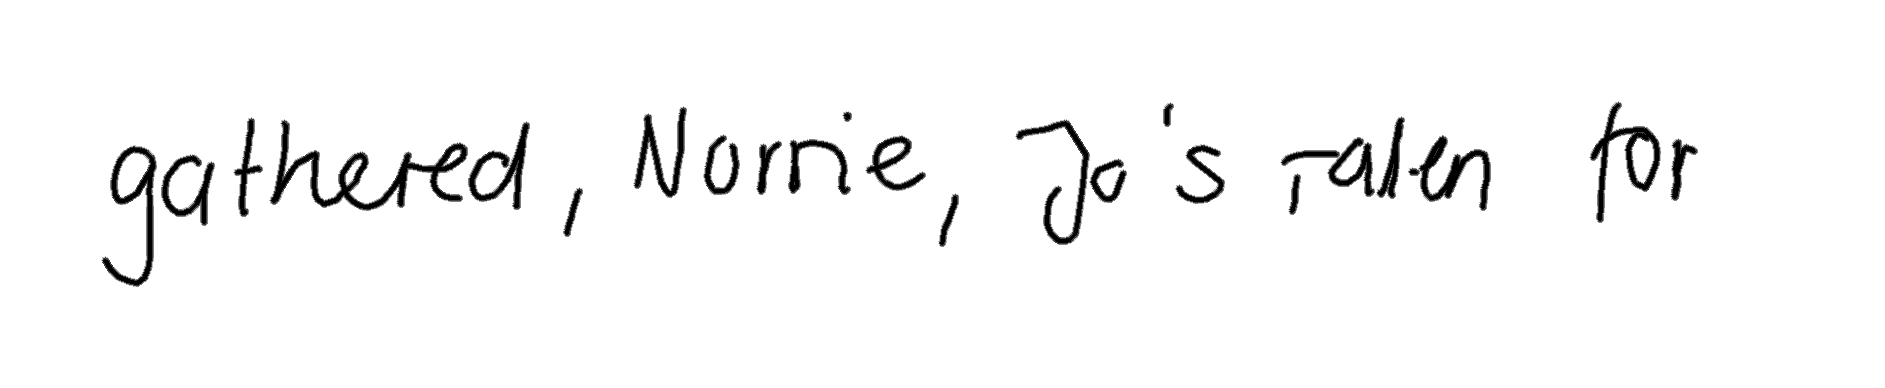 gathered, Norrie, Jo's taken for